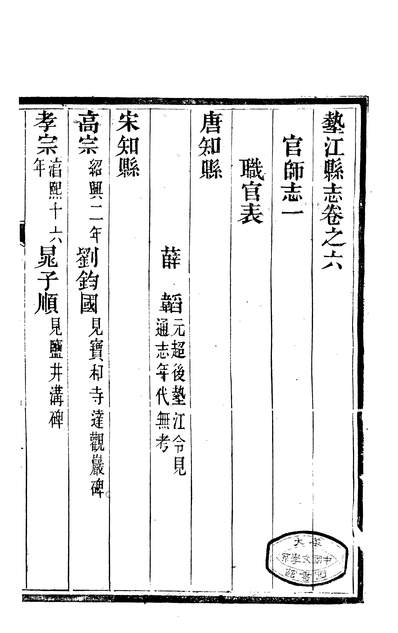 墊江縣志卷之六
官師志一
職官表
唐知縣
薛韜元超後墊江令見
通志年代無考
宋知縣
高宗紹興二年劉鈞國見寶和寺達觀巖碑
孝宗淳熙十六年晁子順見鹽井溝碑